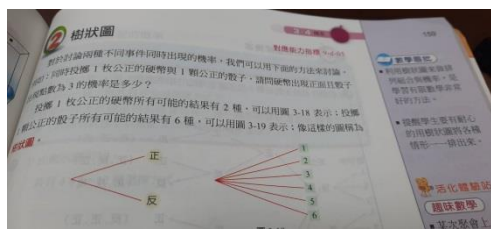 2 樹狀圖
159
對應能力指標
對於討論兩種不同事件同時出現的機率,我們可以用下面的方法來討論。
同時投擲 1 枚公正的硬幣與 1 顆公正的骰子,請問硬幣出現正面且骰子
點數為 3 的機率是多少?
投擲 1 枚公正的硬幣所有可能的結果有 2 種,可以用圖 3-18 表示;投擲
1 顆公正的骰子所有可能的結果有 6 種,可以用圖 3-19 表示;像這樣的圖稱為
樹狀圖。
正
反
1
2
3
4
5
6
教學眉批
好的方法。
活化體驗站
趣味數學